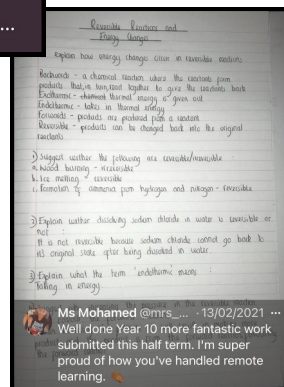 ...
Reversible Reactions and
Energy Changes
Explain how energy changes occur in reversible reactions
Backwards - a chemical reaction where the reactants form
products that, in turn, react together to give the reactants back
Exothermic - thermal energy is given out
Endothermic - takes in thermal energy
Forwards - products are produced from a reactant
Reversible - products can be changed back into the original
reactants
1) Suggest wether the following are reversible/irreversible :
a. Wood burning - irreversible
b. Ice melting - reversible
c. Formation of ammonia from hydrogen and nitrogen - reversible
2) Explain wether dissolving sodium chloride in water is reversible or
not :
It is not reversible because sodium chloride cannot go back to
its original state after being dissolved in water.
3) Explain what the term 'endothermic' means :
Taking in energy.
Ms Mohamed @mrs_... · 13/02/2021 ...
Well done Year 10 more fantastic work
submitted this half term. I'm super
proud of how you've handled remote
learning.